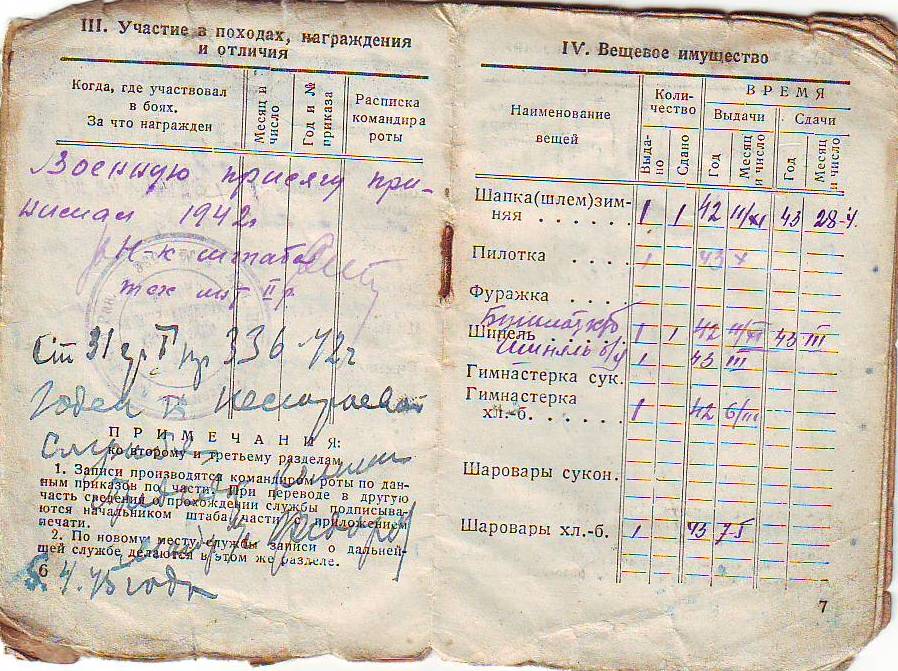 III. Участие в походах, награждения
и отличия
Когда, где участвовал
в боях.
За что награжден
Месяц и
число
Год и №
приказа
Расписка
командира
роты
Военную присягу при-
нимал 1942г
Н-к штаба
тех инт II р.
Ст 31 гр I пр 336-42г
Годен к нестроевой
службе
ПРИМЕЧАНИЯ:
ко второму и третьему разделам
1. Записи производятся командиром роты по дан-
ным приказов по части. При переводе в другую
часть сведения о прохождении службы подписыва-
ются начальником штаба части с приложением
печати.
2. По новому месту службы записи о дальней-
шей службе делаются в этом же разделе.
4.45 года
6
IV. Вещевое имущество
Наименование
вещей
Коли-
чество
ВРЕМЯ
Выдачи
Сдачи
Выда-
но
Сдано
Год
Месяц
и число
Год
Месяц
и число
Шапка(шлем)зим-
няя . . . . . 1 1 42 11/XI 43 28-V.
Пилотка . . . . 1 43 X
Фуражка . . . .
Бушлат хб
Шинель . . . . . 1 1 42 11/XI 43 III
Шинель б/у 1 43 III
Гимнастерка сук.
Гимнастерка
хл.-б. . . . . 1 42 6/III
Шаровары сукон.
Шаровары хл.-б. 1 43 7-I
7